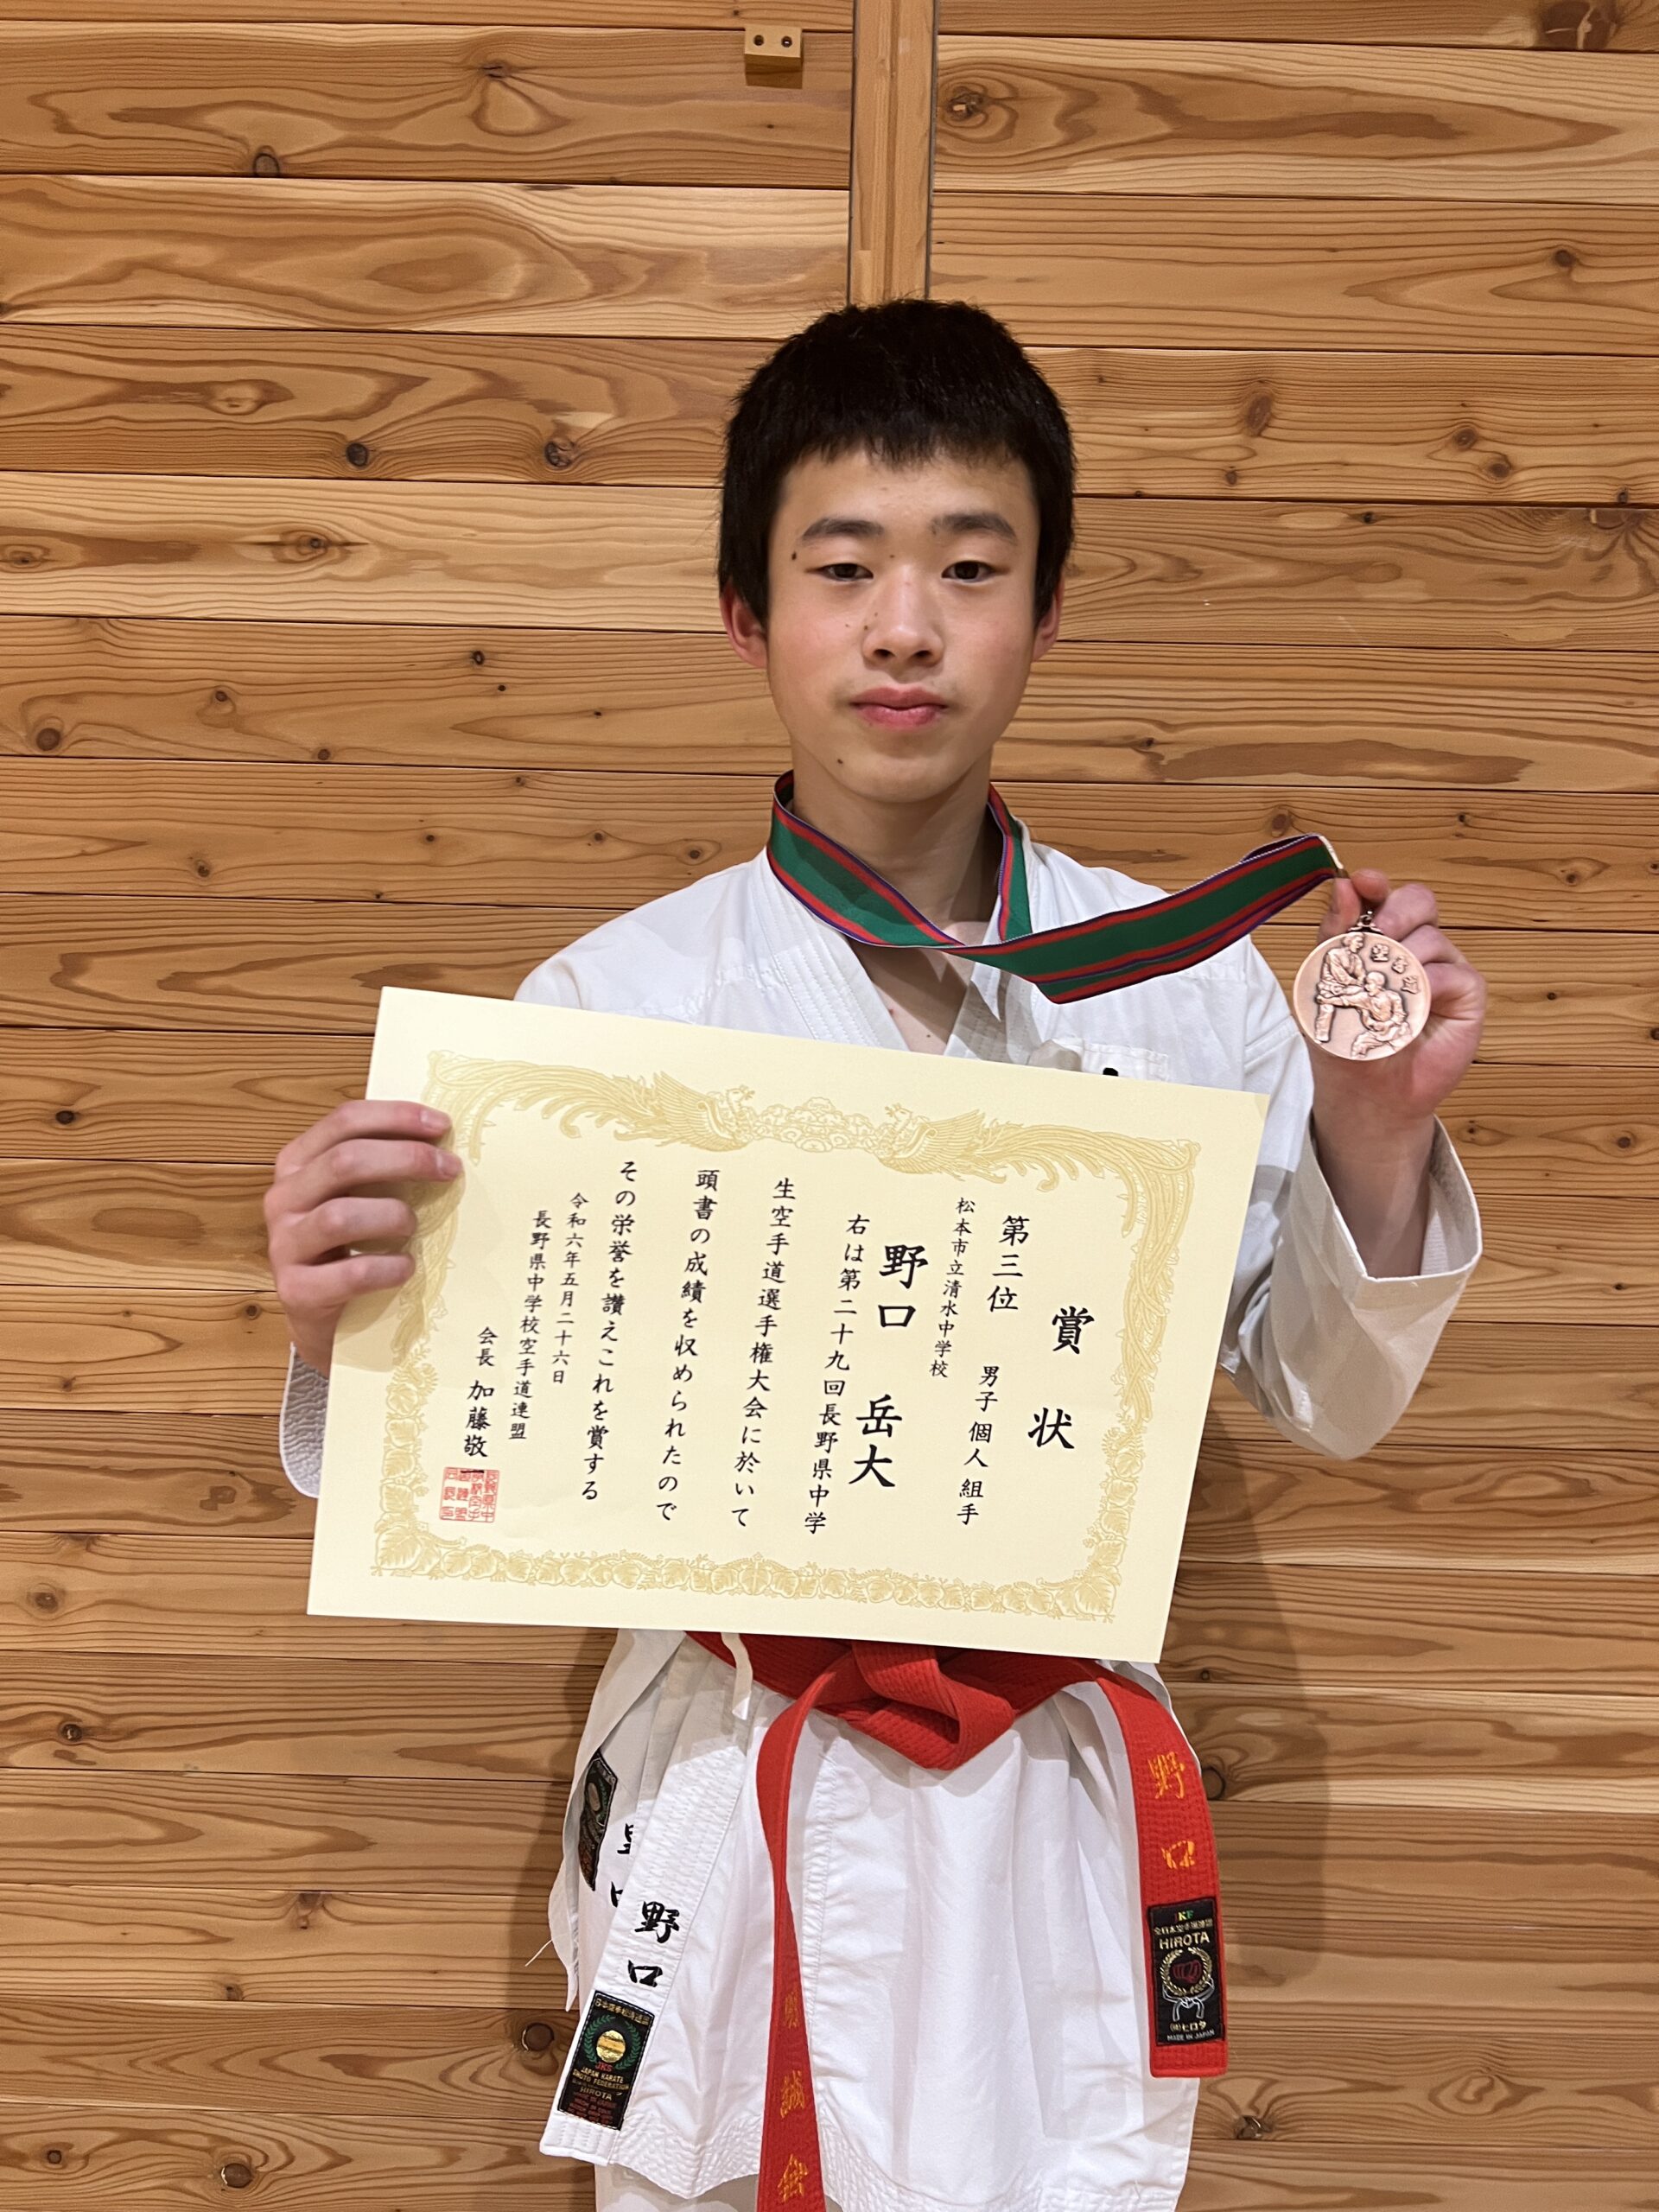 賞状
第三位 男子個人組手
松本市立清水中学校
野口 岳大
右は第二十九回長野県中学
生空手道選手権大会に於いて
頭書の成績を収められたので
その栄誉を讃えこれを賞する
令和六年五月二十六日
長野県中学校空手道連盟
会長 加藤敬
野口
HIROTA
(株)ヒロタ
MADE IN JAPAN
野口
JKS
JAPAN KARATE
SHOTO FEDERATION
HIROTA
誠会